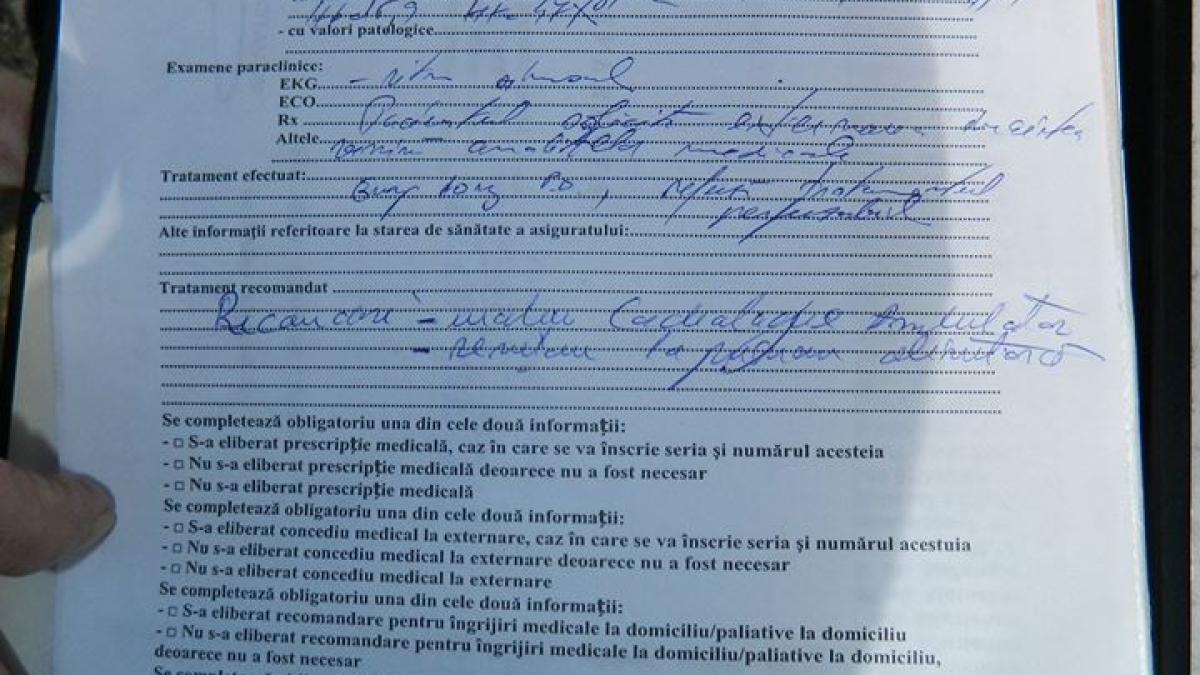 - cu valori patologice
Examene paraclinice:
EKG - ritm sinusal
ECO
Rx Pacientul solicită externarea
Altele analizele medicale
Tratament efectuat:
, refuză tratamentul
perfuzabil
Alte informații referitoare la starea de sănătate a asiguratului:
Tratament recomandat
Cardiologie Ambulator
- alimentară
Se completează obligatoriu una din cele două informații:
- □ S-a eliberat prescripție medicală, caz în care se va înscrie seria și numărul acesteia
- □ Nu s-a eliberat prescripție medicală deoarece nu a fost necesar
- □ Nu s-a eliberat prescripție medicală
Se completează obligatoriu una din cele două informații:
- □ S-a eliberat concediu medical la externare, caz în care se va înscrie seria și numărul acestuia
- □ Nu s-a eliberat concediu medical la externare deoarece nu a fost necesar
- □ Nu s-a eliberat concediu medical la externare
Se completează obligatoriu una din cele două informații:
- □ S-a eliberat recomandare pentru îngrijiri medicale la domiciliu/paliative la domiciliu
- □ Nu s-a eliberat recomandare pentru îngrijiri medicale la domiciliu/paliative la domiciliu,
deoarece nu a fost necesar